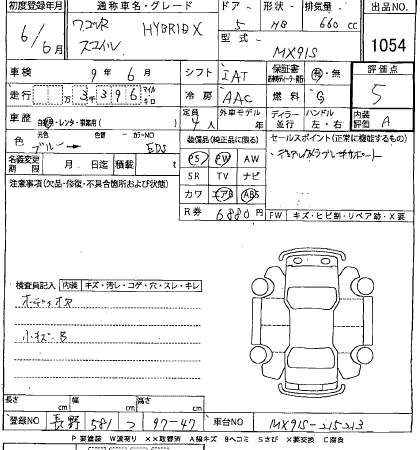 初度登録年月 通称車名・グレード ドア 形状 排気量 出品NO
6/6月 ワゴンR スマイル HYBRID X 5 HB 660 cc
型式 MX91S 1054
車検 9年 6月 シフト IAT 保証書 有・無 評価点
走行 万 3 3 9 6 マイル キロ 冷房 AAC 燃料 G 5
車歴 自家用・レンタ・事業用( ) 定員 4人 外車モデル 年 ディーラー 並行 ハンドル 左・右 内装評価 A
色 元色 ブルー 色替 カラーNO 装備品(純正品に限る) セールスポイント(正常に機能するもの)
名義変更期限 月 日迄 積載 t PS PW AW
注意事項(欠品・修復・不具合箇所および状態) SR TV ナビ
カワ エアB ABS
R券 6880円 FW キズ・ヒビ制・リペア跡・X要
検査員記入 内装 キズ・汚レ・コゲ・穴・スレ・キレ
小キズ B
長さ cm 幅 cm 高さ cm
登録NO 長野 581 つ 97-47 車台NO MX91S-215213
P 要塗装 W波有り ××取替済 A線キズ Bヘコミ Sさび X要交換 C腐食